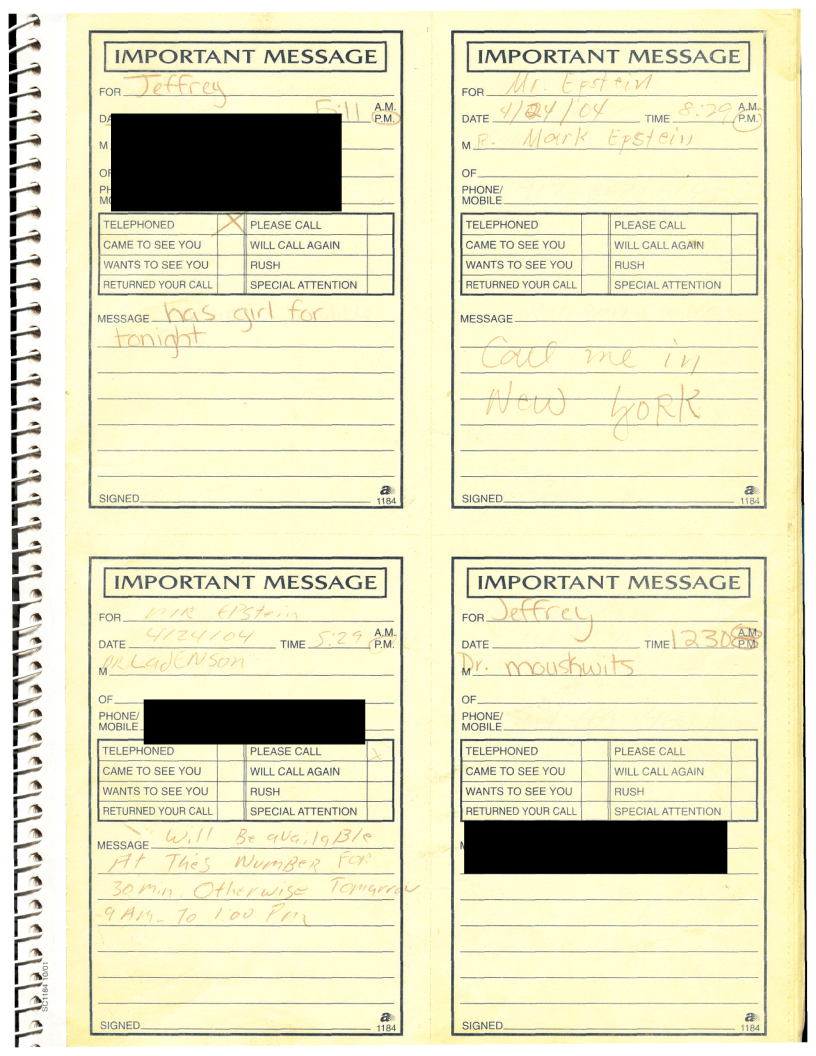 IMPORTANT MESSAGE
FOR Jeffrey
5:11 A.M.
P.M.
M
TELEPHONED X PLEASE CALL
CAME TO SEE YOU WILL CALL AGAIN
WANTS TO SEE YOU RUSH
RETURNED YOUR CALL SPECIAL ATTENTION
MESSAGE has girl for
tonight
SIGNED
a
1184
IMPORTANT MESSAGE
FOR Mr. Epstein
DATE 4/24/04 TIME 8:29 A.M.
P.M.
M R. Mark Epstein
OF
PHONE/
MOBILE
TELEPHONED PLEASE CALL
CAME TO SEE YOU WILL CALL AGAIN
WANTS TO SEE YOU RUSH
RETURNED YOUR CALL SPECIAL ATTENTION
MESSAGE
Call me in
New York
SIGNED
a
1184
IMPORTANT MESSAGE
FOR MR EPStein
DATE 4/24/04 TIME 5:29 A.M.
P.M.
M DR LadENSon
OF
PHONE/
MOBILE
TELEPHONED PLEASE CALL X
CAME TO SEE YOU WILL CALL AGAIN
WANTS TO SEE YOU RUSH
RETURNED YOUR CALL SPECIAL ATTENTION
MESSAGE Will Be availaBle
At This NumBeR FOR
30 min. Otherwise Tomarrow
9 AM- To 1:00 Pm
SIGNED
a
1184
IMPORTANT MESSAGE
FOR Jeffrey
DATE TIME 1230 A.M.
P.M.
M Dr. moushwits
OF
PHONE/
MOBILE
TELEPHONED PLEASE CALL
CAME TO SEE YOU WILL CALL AGAIN
WANTS TO SEE YOU RUSH
RETURNED YOUR CALL SPECIAL ATTENTION
SIGNED
a
1184
SC1184 10/01